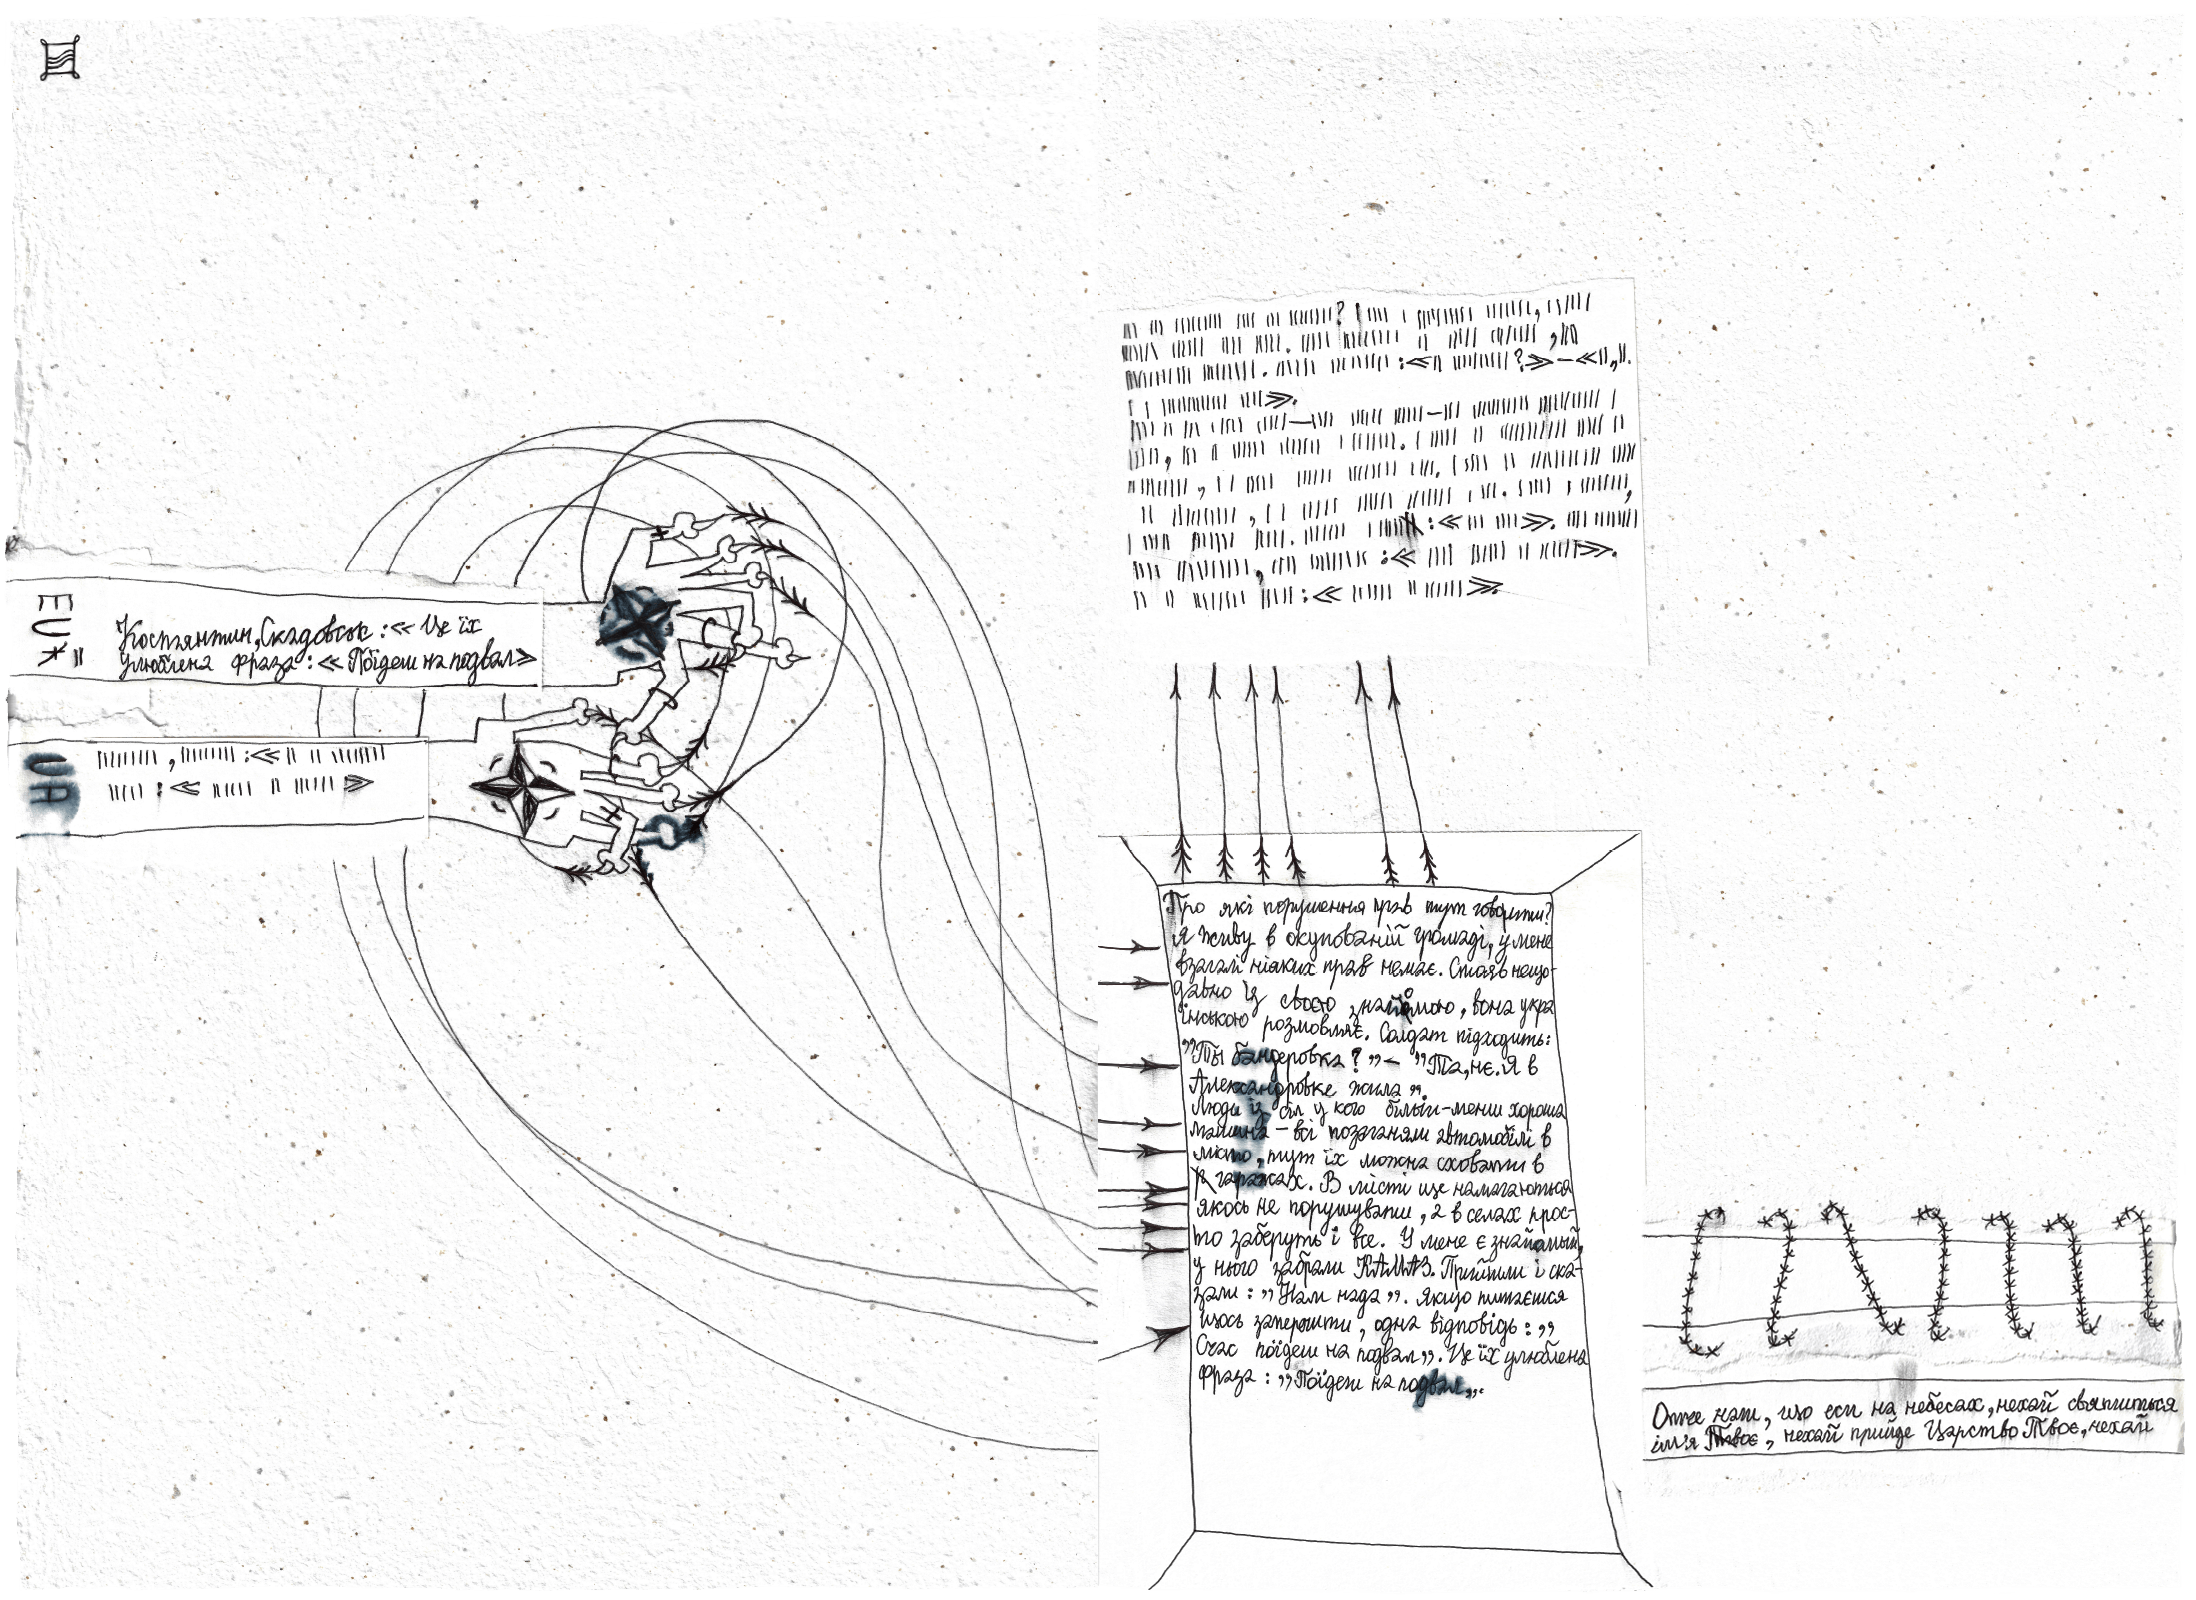 EU
Костянтин, Скадовськ :« Це їх
улюблена фраза :« Поїдеш на подвал»
UA
Про які порушення прав тут говорити?
Я живу в окупованій громаді, у мене
взагалі ніяких прав немає. Стояв нещо-
давно із своєю знайомою, вона укра
їнською розмовляє. Солдат підходить:
"Ты бандеровка?" – "Та, нє. Я в
Александровке жила".
Люди із сіл у кого більш-менш хороша
машина – всі позаганяли автомобілі в
місто, тут їх можна сховати в
гаражах. В місті ще намагаються
якось не порушувати, а в селах прос-
то заберуть і все. У мене є знайомый,
у нього забрали КАМАЗ. Прийшли і ска-
зали : "Нам нада". Якщо питаєшся
щось заперечити, одна відповідь : "
Счас поїдеш на подвал". Це їх улюблена
фраза : "Поїдеш на подвал".
Отче наш, що еси на небесах, нехай святиться
ім'я Твоє, нехай прийде Царство Твоє, нехай